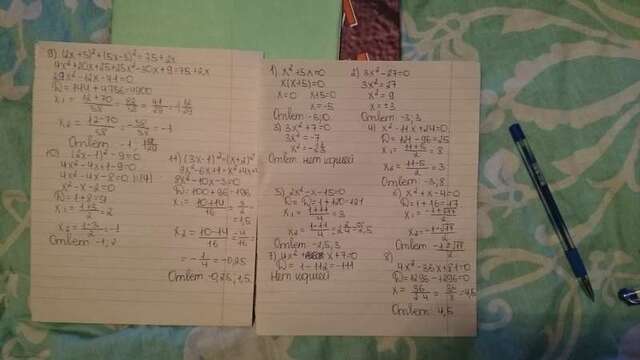 9) (2x+5)²+(5x-3)²=75+2x
4x²+20x+25+25x²-30x+9=75+2x
29x²-12x-41=0
D=144+4756=4900
x₁=12+70/58=82/58=41/29=1 12/29
x₂=12-70/58=-58/58=-1
Ответ -1, 1 12/29
10) (2x-1)²-9=0
4x²-4x+1-9=0
4x²-4x-8=0 |:(4)
x²-x-2=0
D=1+8=9
x₁=1+3/2=2
x₂=1-3/2=-1
Ответ -1, 2
11) (3x-1)²=(x+2)²
9x²-6x+1=x²+4x+4
8x²-10x-3=0
D=100+96=196
x₁=10+14/16=3/2=1,5
x₂=10-14/16=-4/16=
=-1/4=-0,25
Ответ -0,25, 1,5
1) x²+5x=0
x(x+5)=0
x=0 x+5=0
x=-5
Ответ -5; 0
2) 3x²-27=0
3x²=27
x²=9
x=±3
Ответ -3; 3
3) 3x²+7=0
3x²=-7
x²=-2⅓
Ответ нет решений
4) x²-11x+24=0
D=121-96=25
x₁=11+5/2=8
x₂=11-5/2=3
Ответ -3, 8
5) 2x²-x-15=0
D=1+120=121
x₁=1+11/4=3
x₂=1-11/4=-2,5
Ответ -2,5, 3
6) x²+x-4=0
D=1+16=17
x₁=-1+√17/2
x₂=-1-√17/2
Ответ -1±√17/2
7) 4x²+x+7=0
D=1-112=-111
Нет решений
8) 4x²-36x+81=0
D=1296-1296=0
x=36/2·4=36/8=4,5
Ответ 4,5